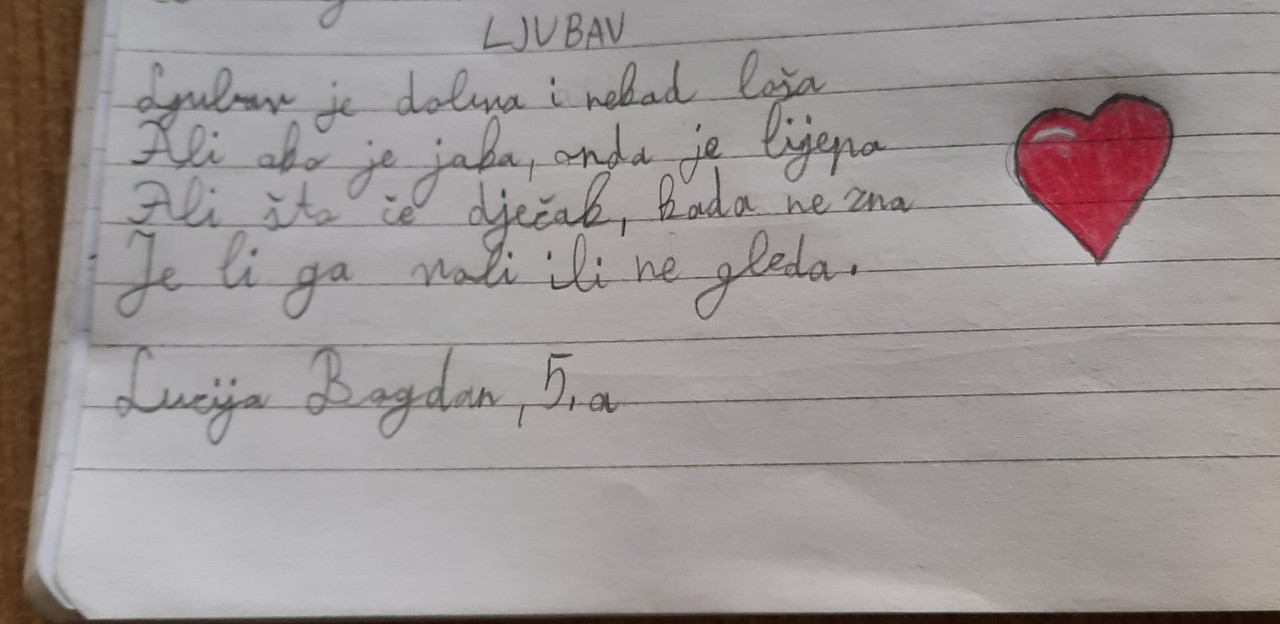 LJUBAV
Ljubav je dolina i nekad loša
Ali ako je jaka, onda je lijepa
Ali šta će dječak, kada ne zna
Je li ga voli ili ne gleda.
Lucija Bogdan, 5, a